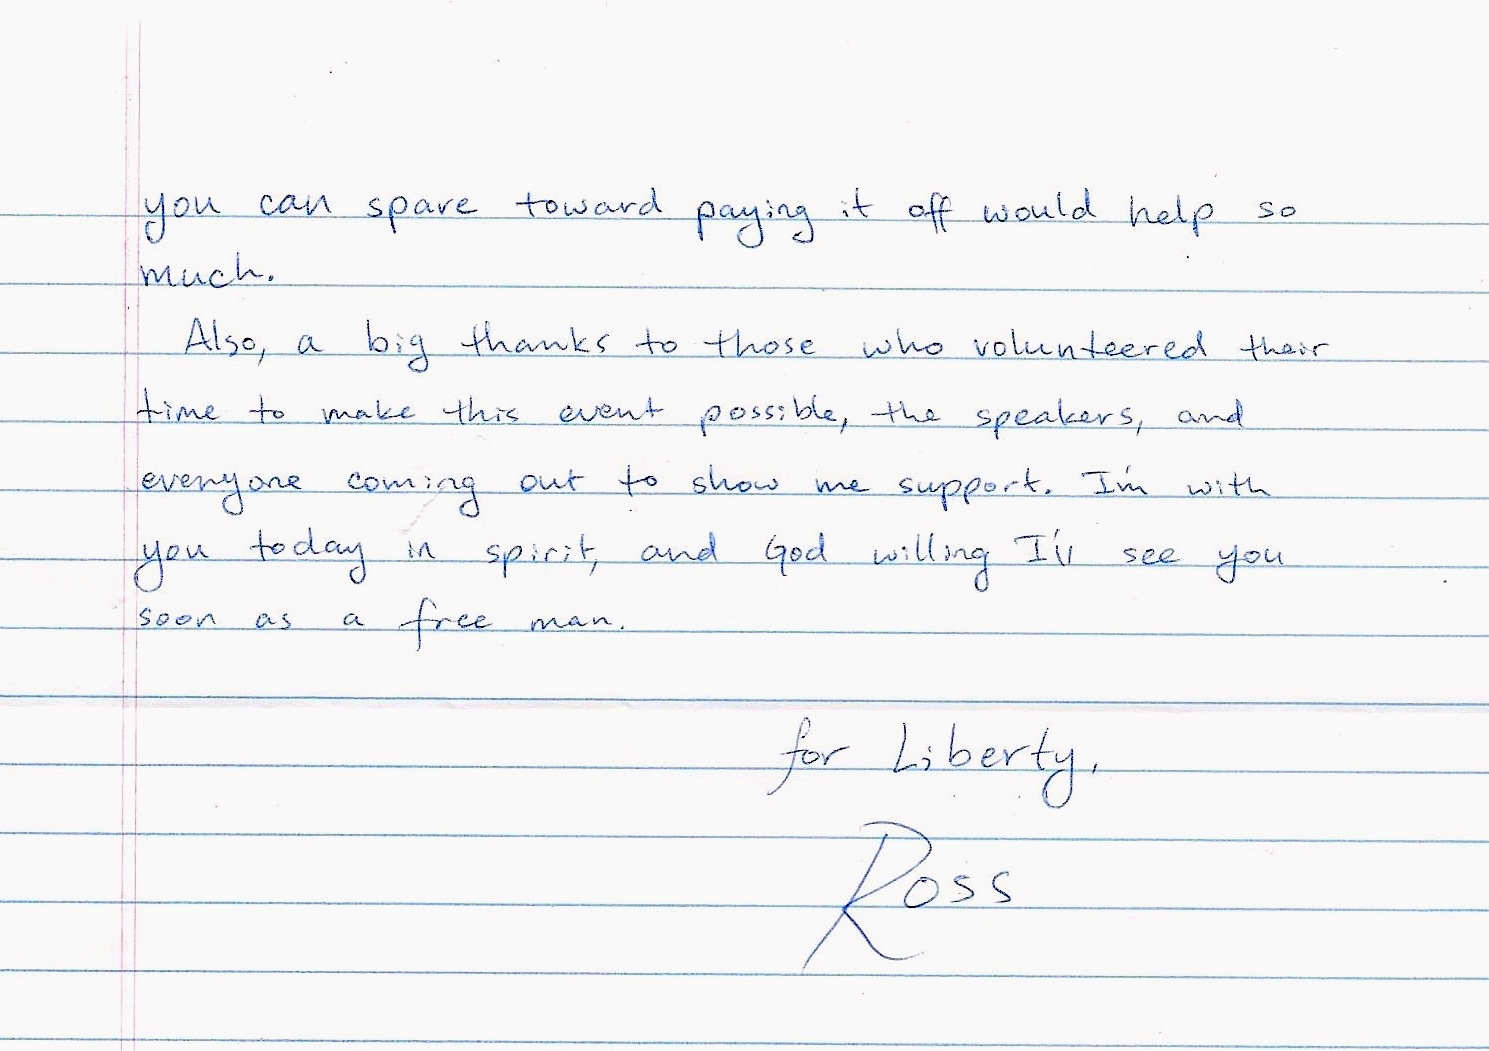 you can spare toward paying it off would help so
much.
Also, a big thanks to those who volunteered their
time to make this event possible, the speakers, and
everyone coming out to show me support. I'm with
you today in spirit, and God willing I'll see you
soon as a free man.
for Liberty,
Ross